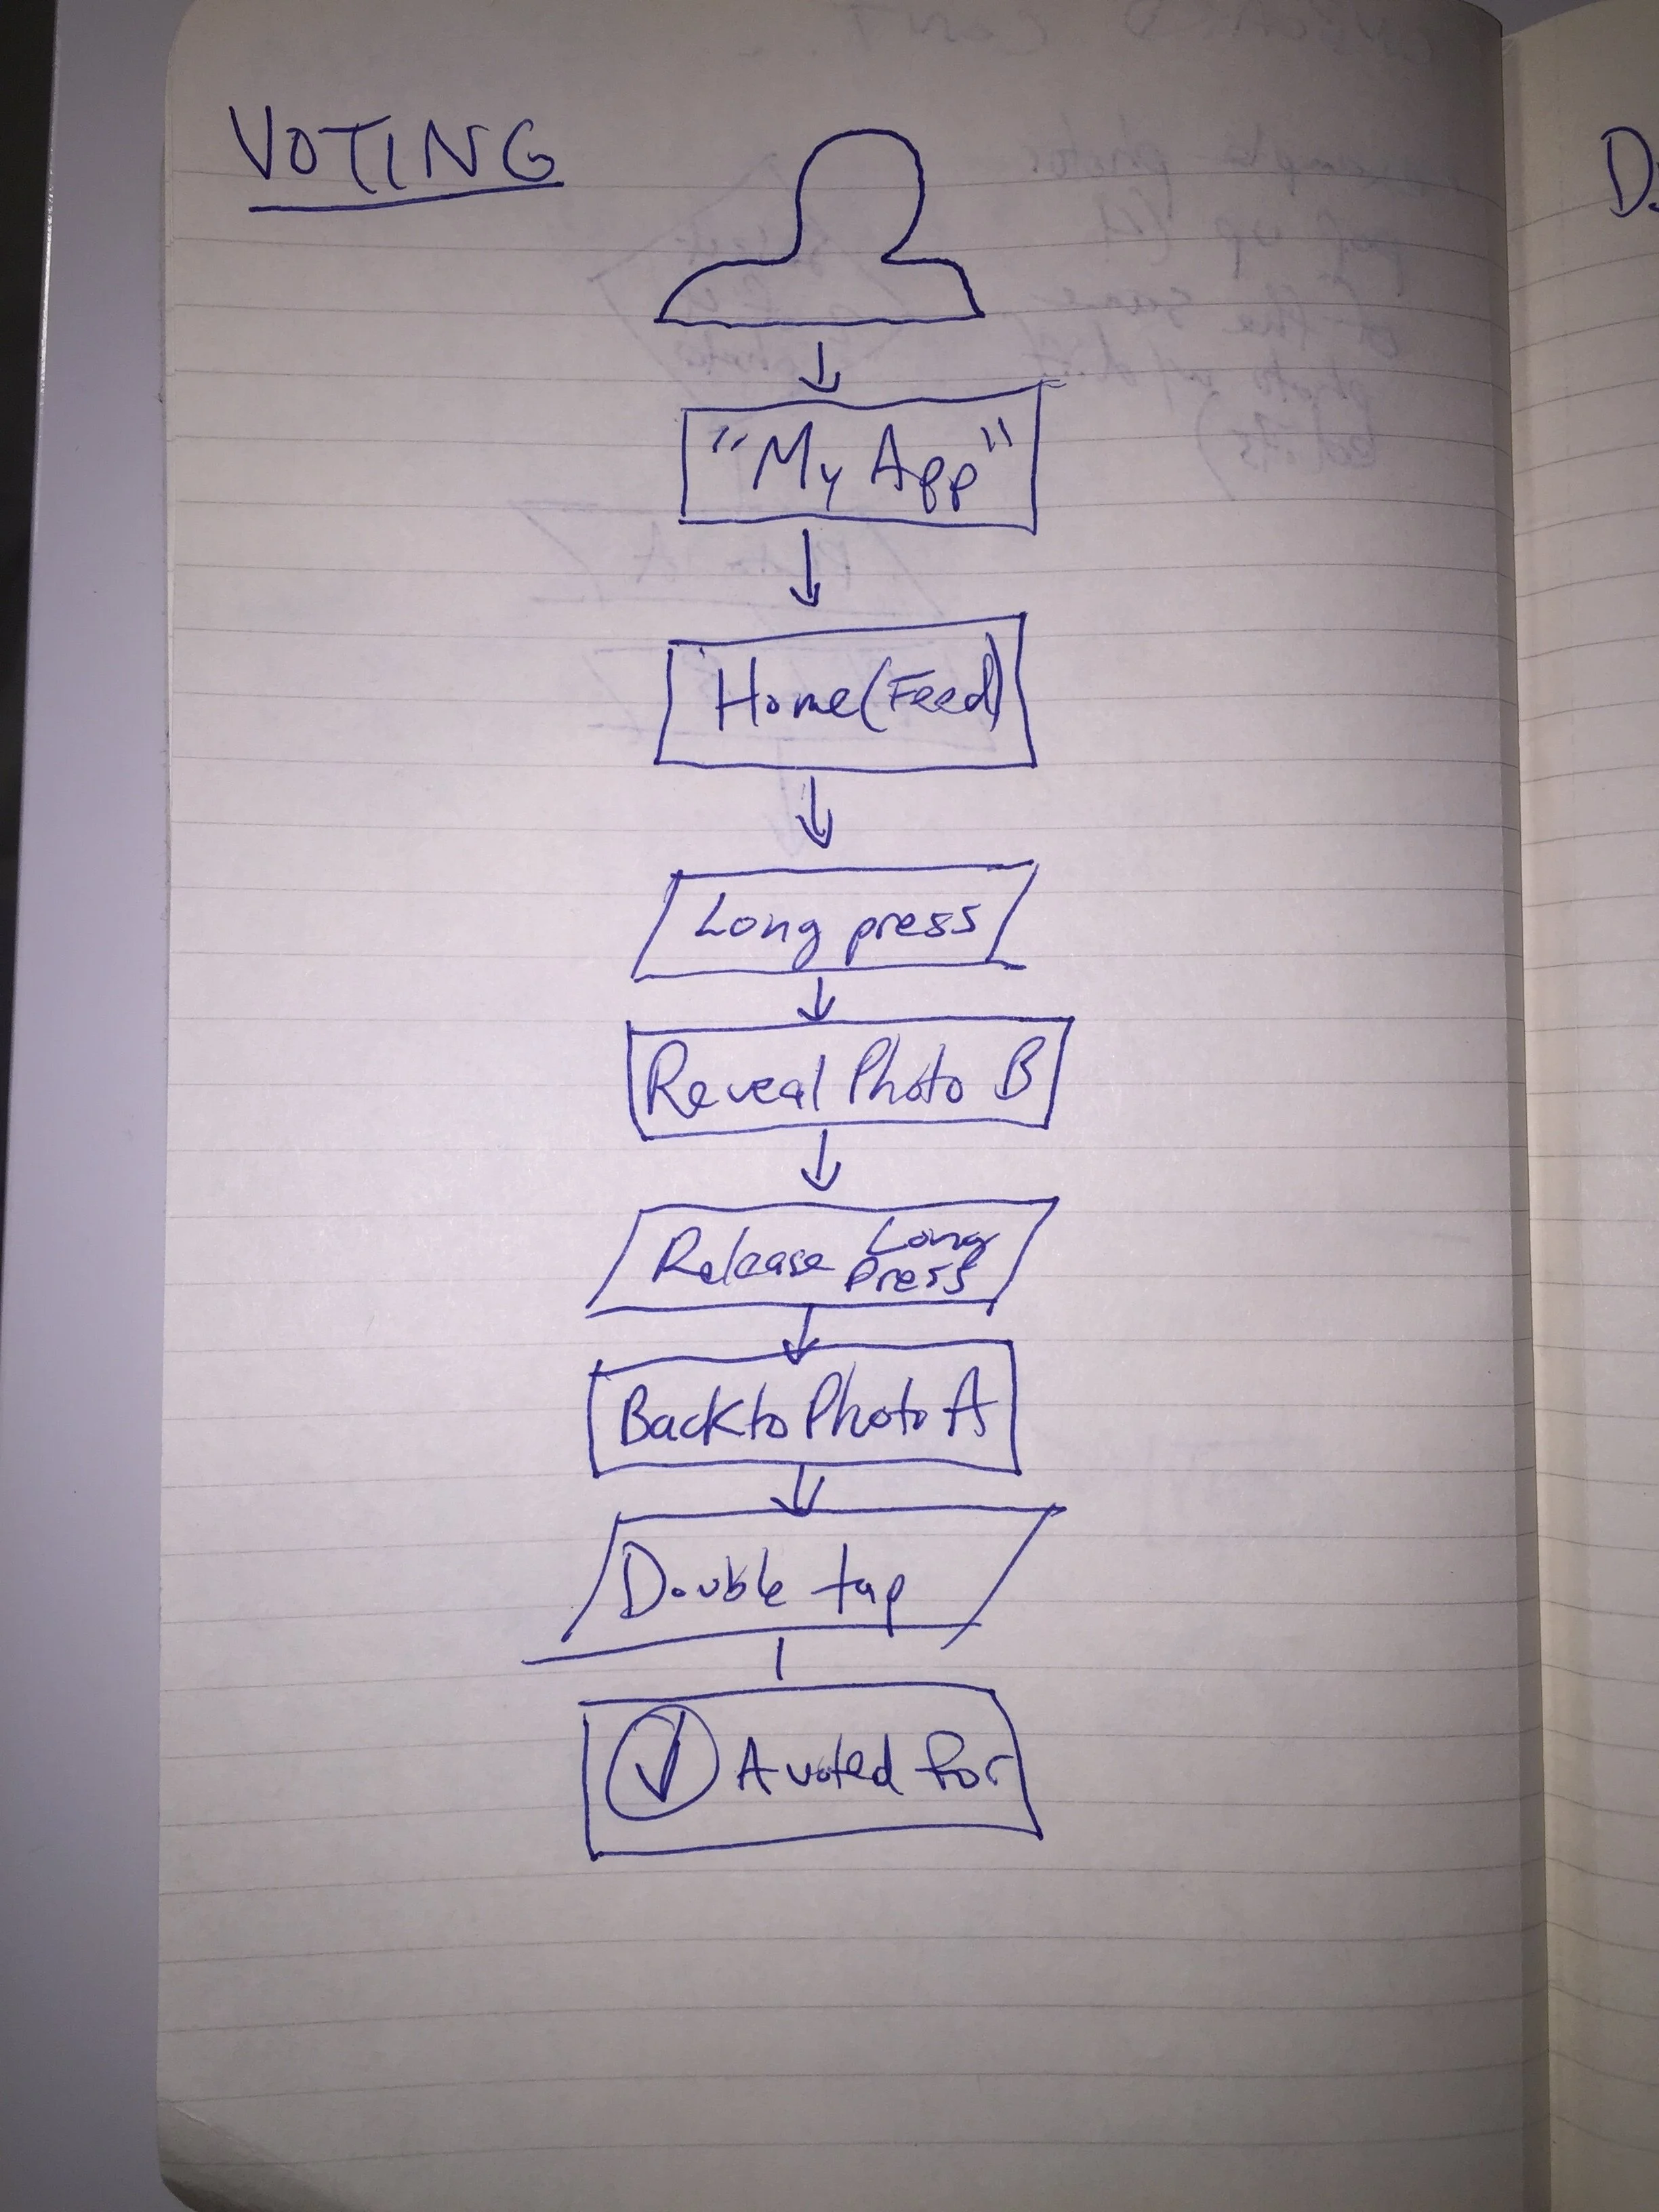 VOTING
"My App"
Home (Feed)
Long press
Reveal Photo B
Release Long
Press
Back to Photo A
Double tap
A voted for